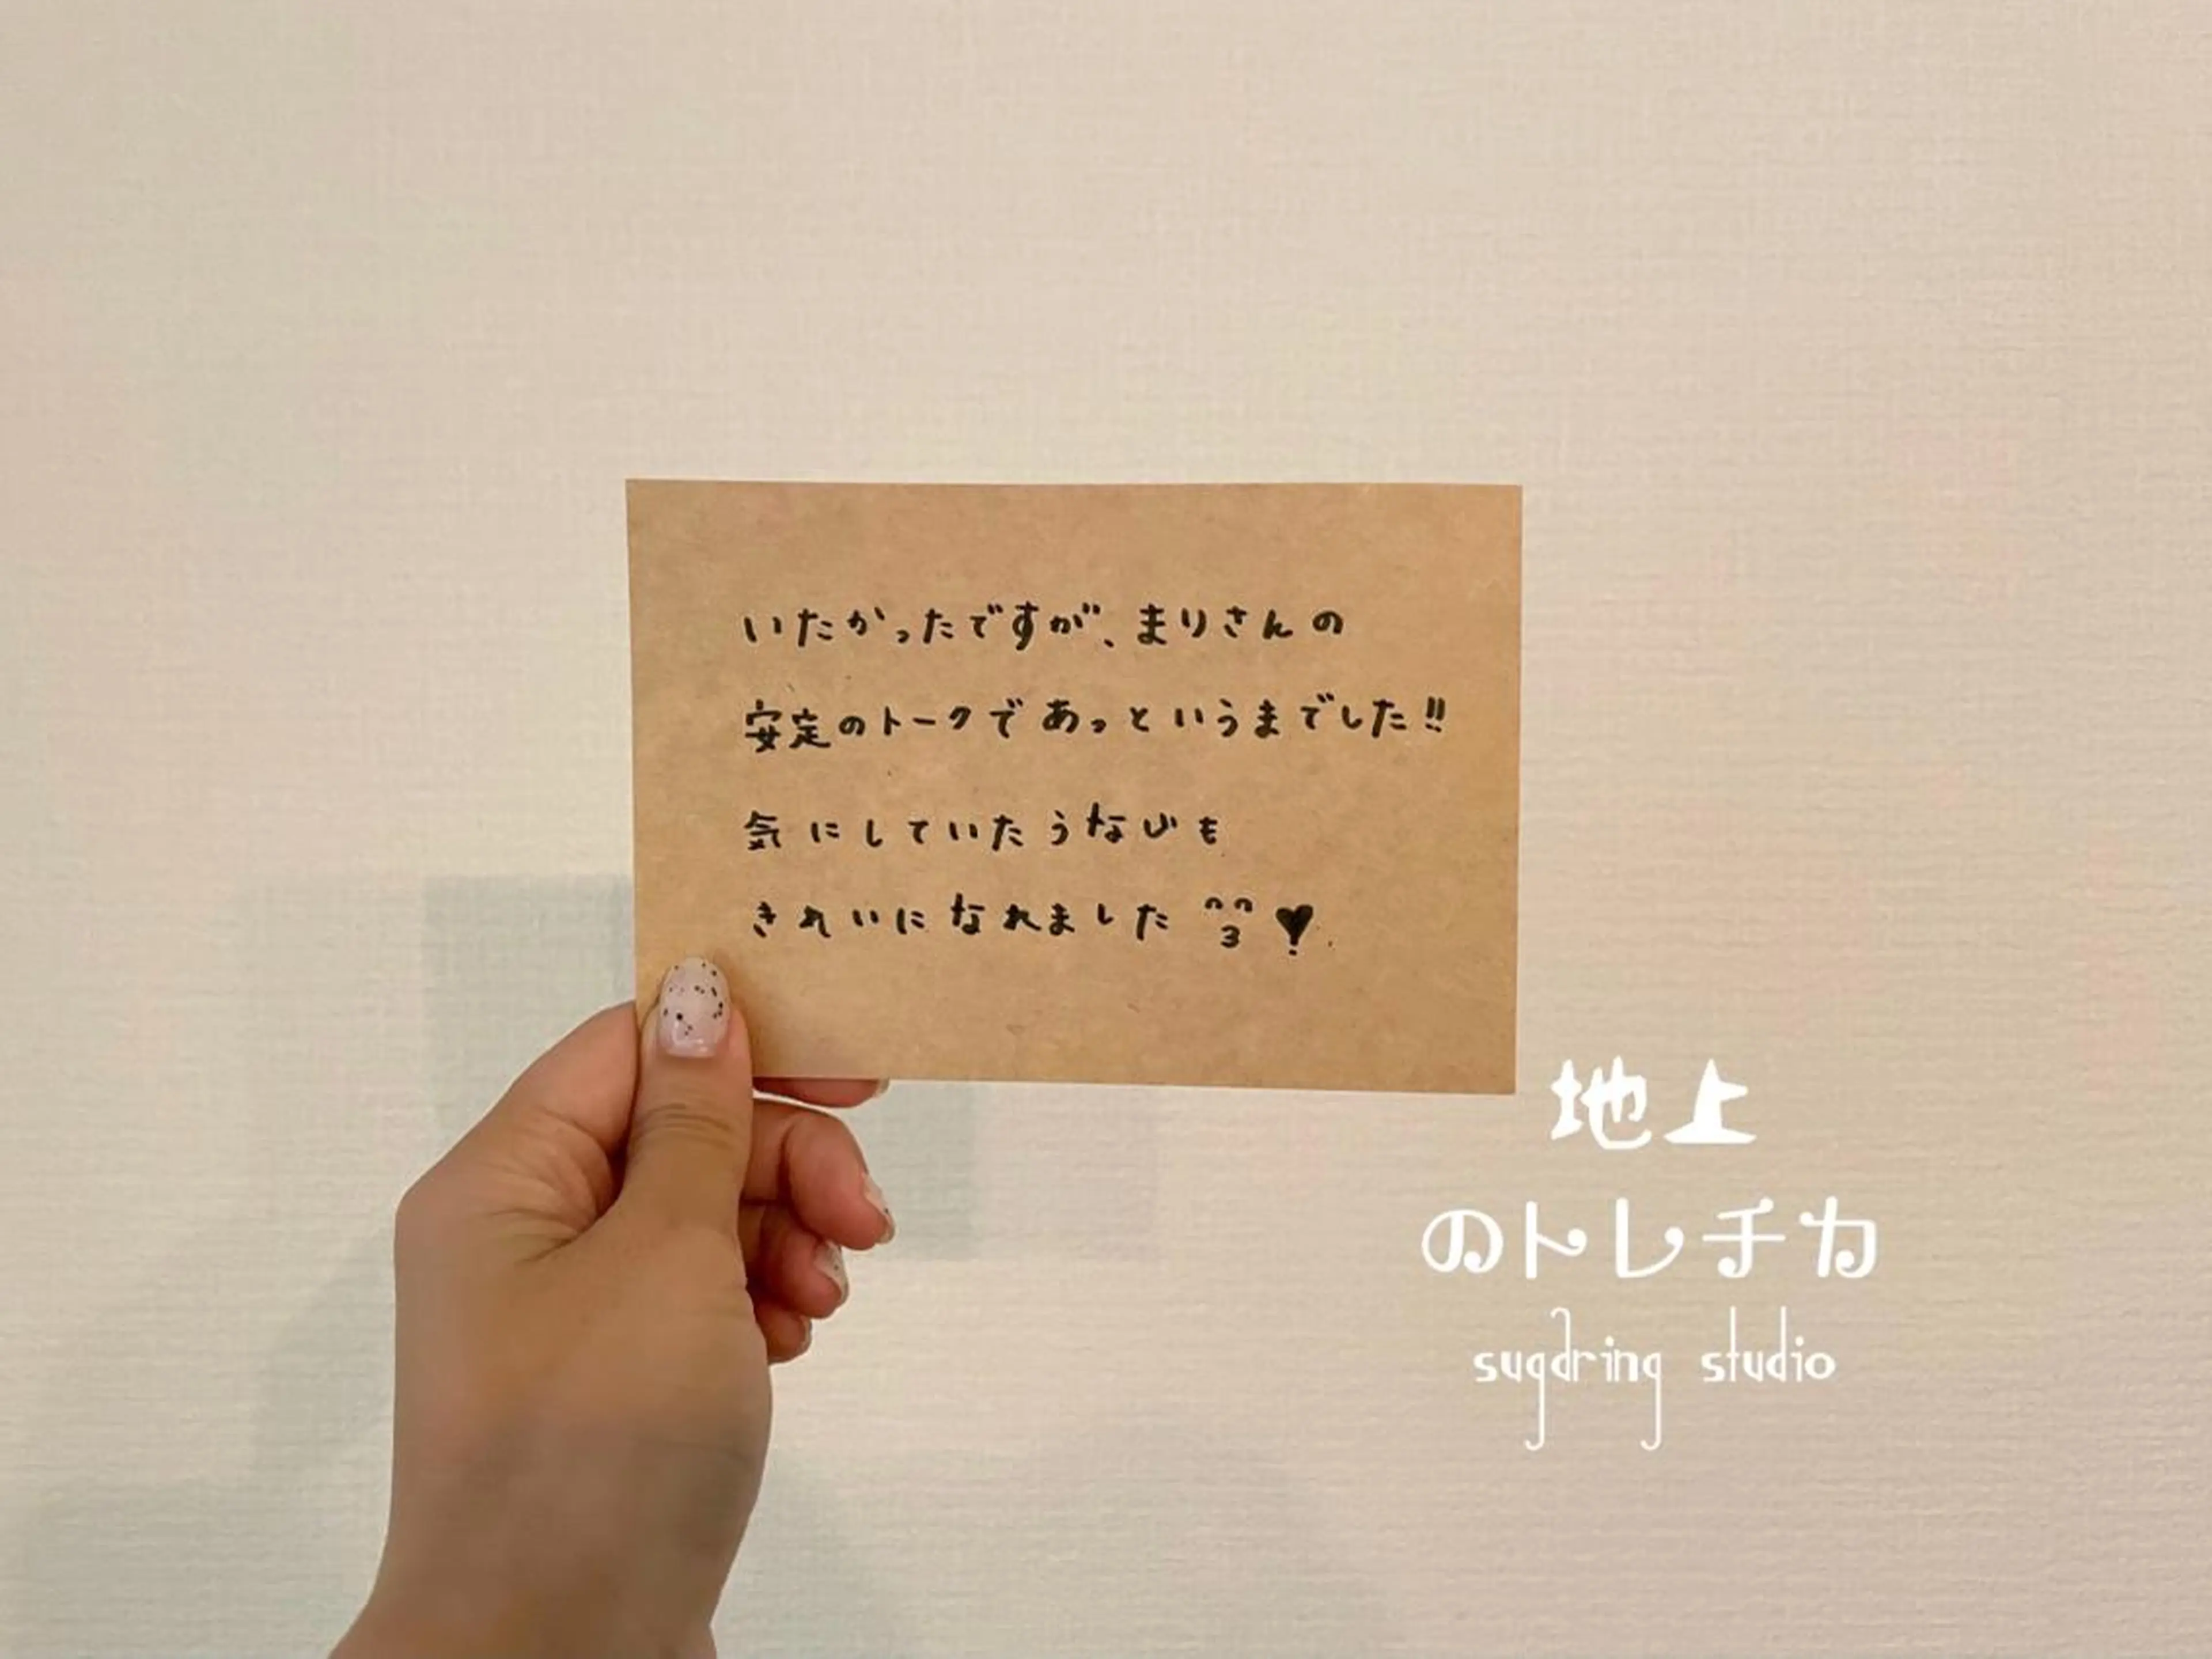 いたかったですが、まりさんの
安定のトークであっというまでした!!
気にしていたうなじも
きれいになれました
地上
のトレチカ
sugaring studio